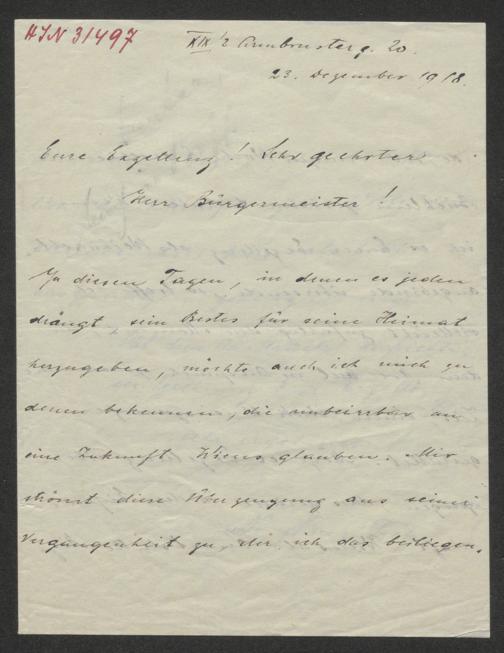 HJN 31497
XIX/2 Armbrusterg. 20.
23. Dezember 1918.
Eure Exzellenz! Sehr geehrter
Herr Bürgermeister!
In diesen Tagen, in denen es jeden
drängt sein Bestes für seine Heimat
herzugeben, möchte auch ich mich zu
denen bekennen, die unbeirrbar an
eine Zukunft Wiens glauben. Mir
strömt diese Überzeugung aus seiner
Vergangenheit zu, der ich das beiliegen-